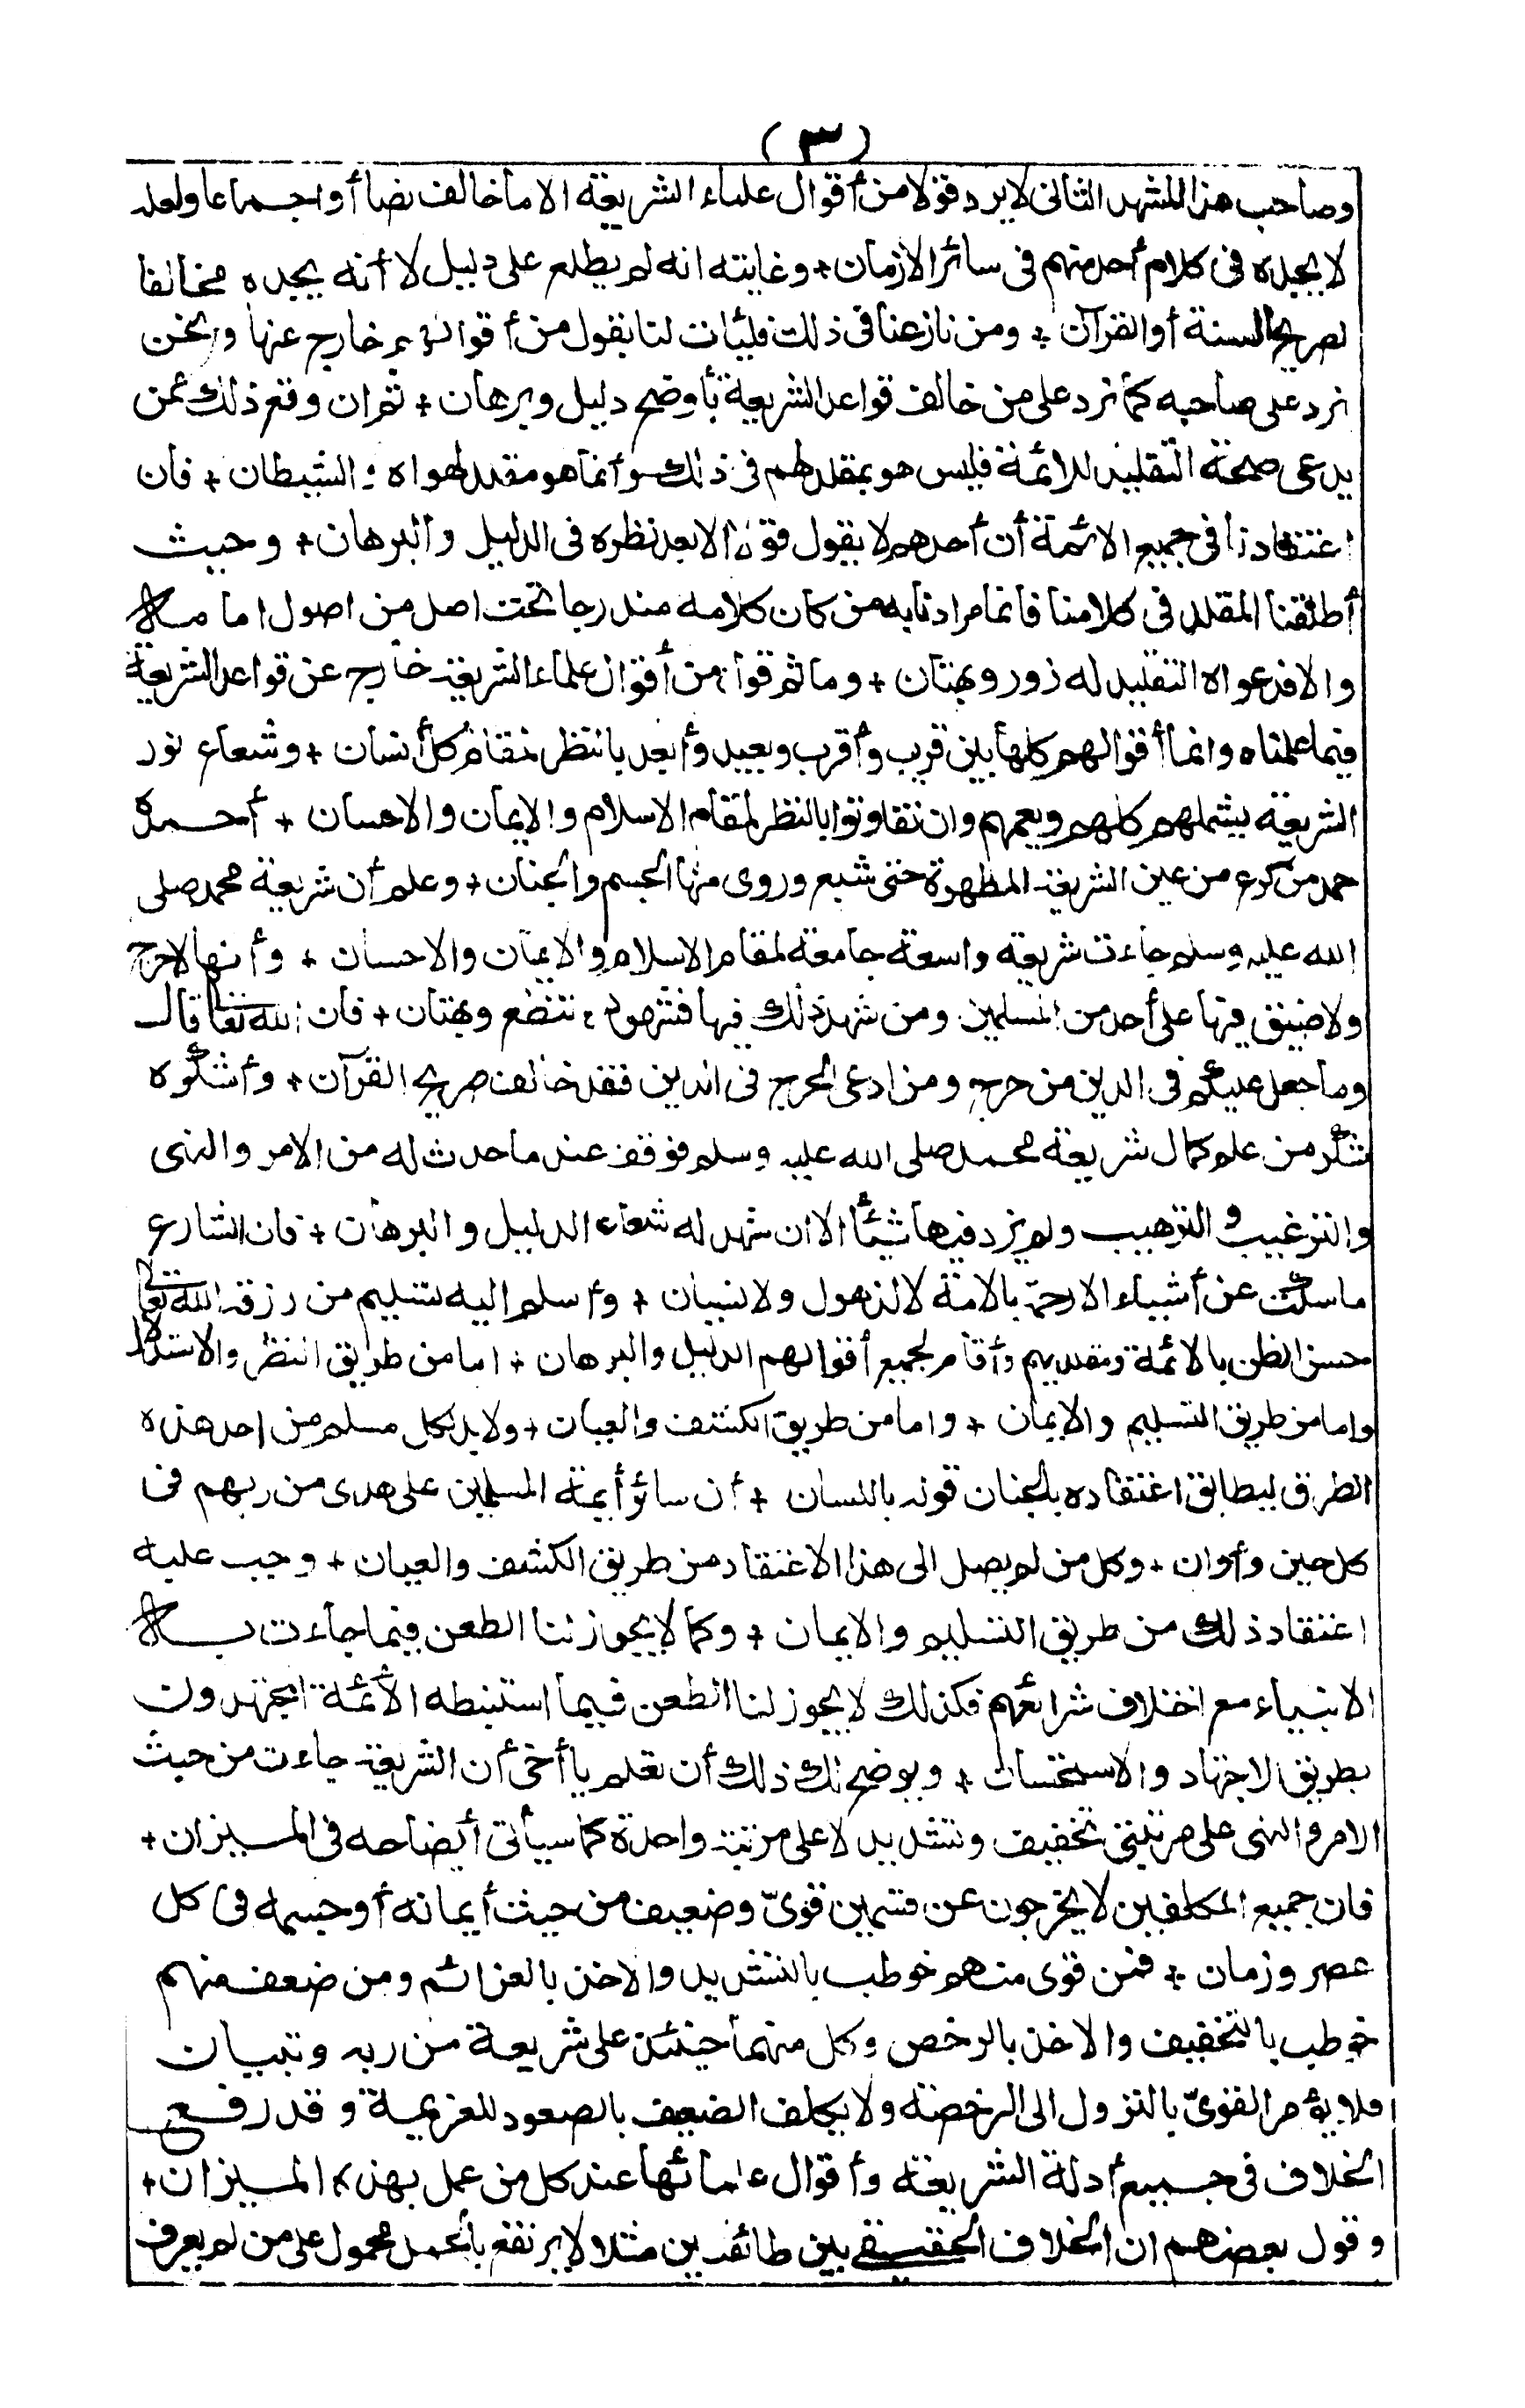 (٣)
وصاحب هذا المشهد الثانى لا يرد قولا من أقوال علماء الشريعة الا ما خالف نصا أو اجماعا ولعله
لا يجده فى كلام أحد منهم فى سائر الأزمان + وغايته انه لم يطلع على دليل لا أنه يجده مخالفا
لصريح السنة أو القرآن + ومن نازعنا فى ذلك فليأت لنا بقول من أقوالهم خارج عنها ونحن
نرد على صاحبه كما نرد على من خالف قواعد الشريعة بأوضح دليل وبرهان + ثم ان وقع ذلك ممن
يدعى صحة التقليد للائمة فليس هو بمقلد لهم فى ذلك وأنما هو مقلد لهواه والشيطان + فان
اعتقادنا فى جميع الائمة أن أحدهم لا يقول قولا الا بعد نظره فى الدليل والبرهان + وحيث
أطلقنا المقلد فى كلامنا فانما مرادنا به من كان كلامه مندرجا تحت اصل من اصول امامه
والا فدعواه التقليد له زور وبهتان + وما ثم قول من أقوال علماء الشريعة خارج عن قواعد الشريعة
فيما علمناه وانما أقوالهم كلها بين قريب وأقرب وبعيد وأبعد بالنظر لمقام كل أنسان + وشعاع نور
الشريعة يشملهم كلهم ويعمهم وان تفاوتوا بالنظر لمقام الاسلام والايمان والاحسان + أحمده
حمد من كرع من عين الشريعة المطهرة حتى شبع وروى منها الجسم والجنان + وعلم أن شريعة محمد صلى
الله عليه وسلم جاءت شريعة واسعة جامعة لمقام الاسلام والايمان والاحسان + وأنها لا حرج
ولا ضيق فيها على أحد من المسلمين ومن شهد ذلك فيها فشهوده تنطع وبهتان + فان الله تعالى قال
وما جعل عليكم فى الدين من حرج ومن ادعى الحرج فى الدين فقد خالف صريح القرآن + وأشكره
شكر من علم كمال شريعة محمد صلى الله عليه وسلم فوقف عند ما حدت له من الامر والنهى
والترغيب والترهيب ولم يزد فيها شيئًا الا ان شهد له شعاع الدليل والبرهان + فان الشارع
ما سكت عن أشياء الا رحمة بالامة لا لذهول ولا نسيان + وأسلم اليه تسليم من رزقه الله تعالى
حسن الظن بالائمة ومقلديهم وأقام لجميع أقوالهم الدليل والبرهان + اما من طريق النظر والاستدلال
واما من طريق التسليم والايمان + واما من طريق الكشف والعيان + ولا بد لكل مسلم من احد هذه
الطرق ليطابق اعتقاده بالجنان قوله باللسان + أن سائر أيمة المسلمين على هدى من ربهم فى
كل حين وأوان + وكل من لم يصل الى هذا الاعتقاد من طريق الكشف والعيان + وجب عليه
اعتقاد ذلك من طريق التسليم والايمان + وكما لا يجوز لنا الطعن فيما جاءت به
الانبياء مع اختلاف شرائعهم فكذلك لا يجوز لنا الطعن فيما استنبطه الأئمة المجتهدون
بطريق الاجتهاد والاستحسان + ويوضح لك ذلك أن تعلم يا أخى أن الشريعة جاءت من حيث
الامر والنهى على مرتبتى تخفيف وتشديد لا على مرتبة واحدة كما سيأتى أيضاحه فى الميزان +
فان جميع المكلفين لا يخرجون عن قسمين قوىّ وضعيف من حيث أيمانه أو جسمه فى كل
عصر وزمان + فمن قوى منهم خوطب بالتشديد والاخذ بالعزائم ومن ضعف منهم
خوطب بالتخفيف والاخذ بالرخص وكل منهما حينئذ على شريعة من ربه وتبيان
فلا يؤمر القوىّ بالنزول الى الرخصة ولا يكلف الضعيف بالصعود للعزيمة وقد رفع
الخلاف فى جميع أدلة الشريعة وأقوال علمائها عند كل من عمل بهذه الميزان +
وقول بعضهم ان الخلاف الحقيقى بين طائفتين مثلا لا يرتفع بالحمل محمول على من لم يعرف